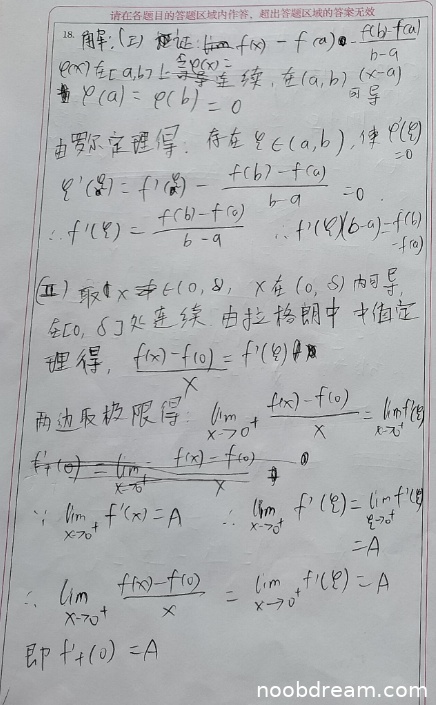 请在各题目的答题区域内作答,超出答题区域的答案无效
18. 解:(Ⅰ) 证: f(x) - f(a) - \frac{f(b)-f(a)}{b-a}(x-a)
令φ(x)=
φ(x)在[a,b]上连续,在(a,b)可导
φ(a)=φ(b)=0
由罗尔定理得,存在ξ∈(a,b),使φ'(ξ)=0
φ'(ξ)=f'(ξ)-\frac{f(b)-f(a)}{b-a}=0.
∴f'(ξ)=\frac{f(b)-f(a)}{b-a} ∴f'(ξ)(b-a)=f(b)-f(a)
(Ⅱ) 取x∈(0,δ, x在(0,δ)内可导,
在[0,δ]处连续.由拉格朗中中值定
理得,\frac{f(x)-f(0)}{x}=f'(ξ)
两边取极限得: \lim_{x→0^+}\frac{f(x)-f(0)}{x}=\lim_{x→0^+}f'(ξ)
∵\lim_{x→0^+}f'(x)=A ∴\lim_{x→0^+}f'(ξ)=\lim_{ξ→0^+}f'(ξ)
=A
∴\lim_{x→0^+}\frac{f(x)-f(0)}{x}=\lim_{x→0^+}f'(ξ)=A
即f'_+(0)=A
noobdream.com